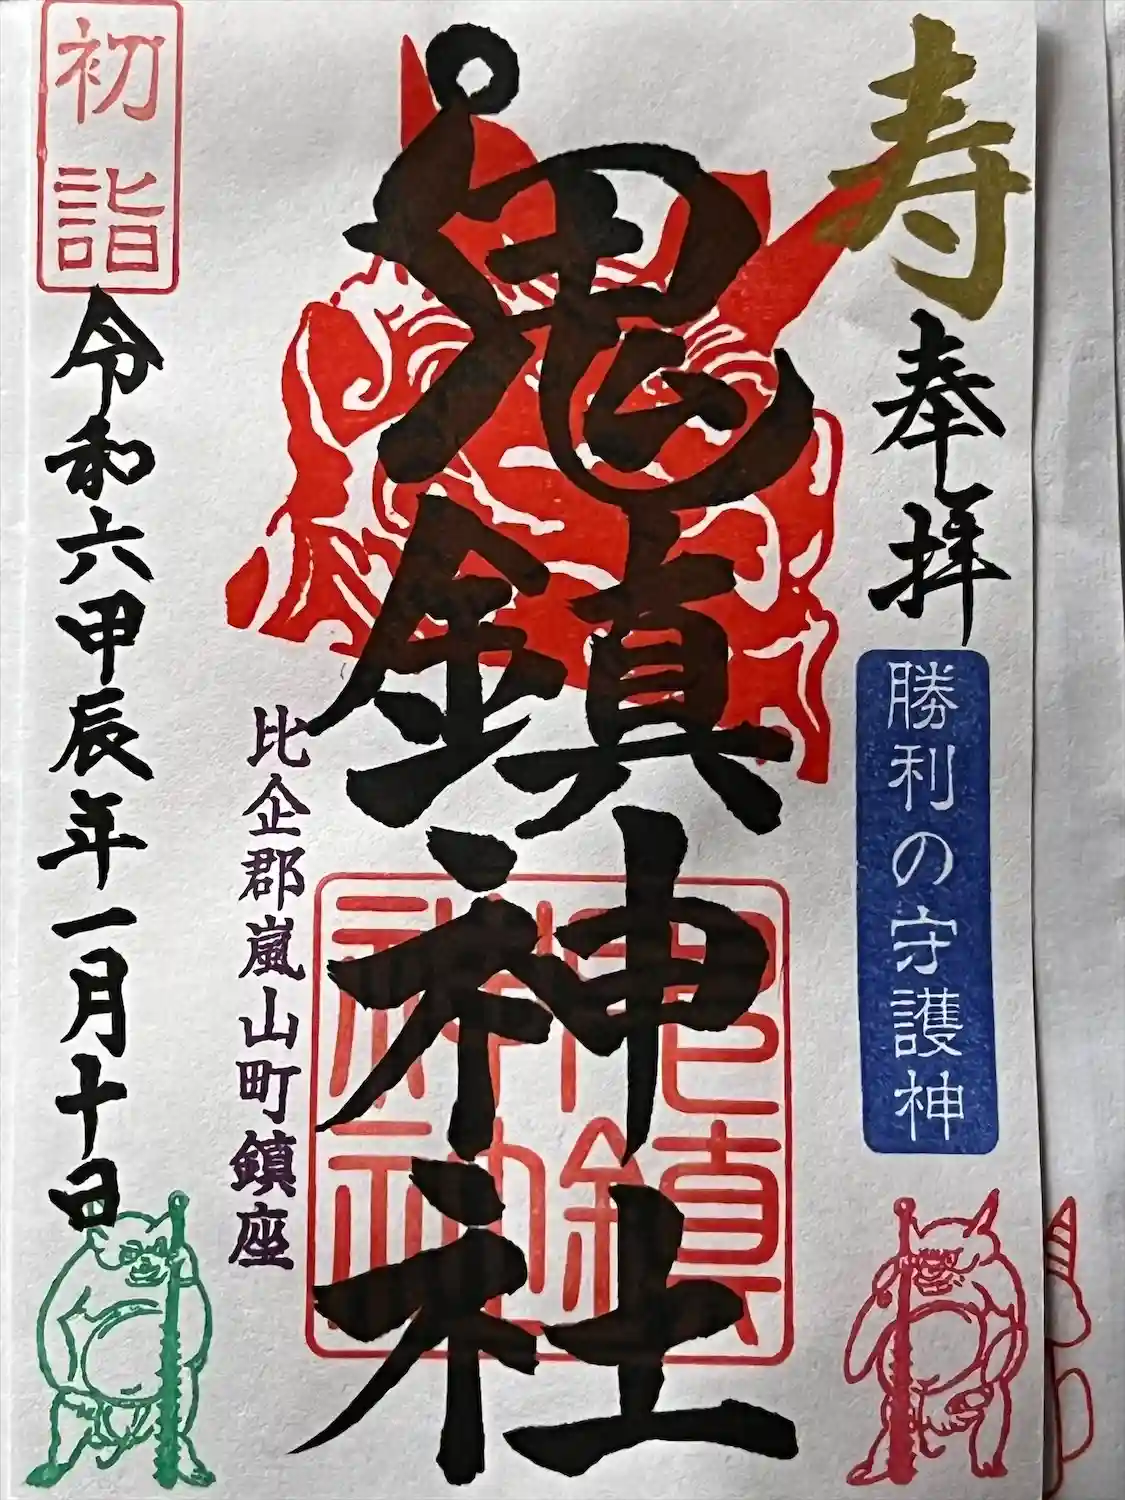 寿
奉拝
勝利の守護神
鬼鎮神社
鬼鎮神社
比企郡嵐山町鎮座
初詣
令和六甲辰年一月十日